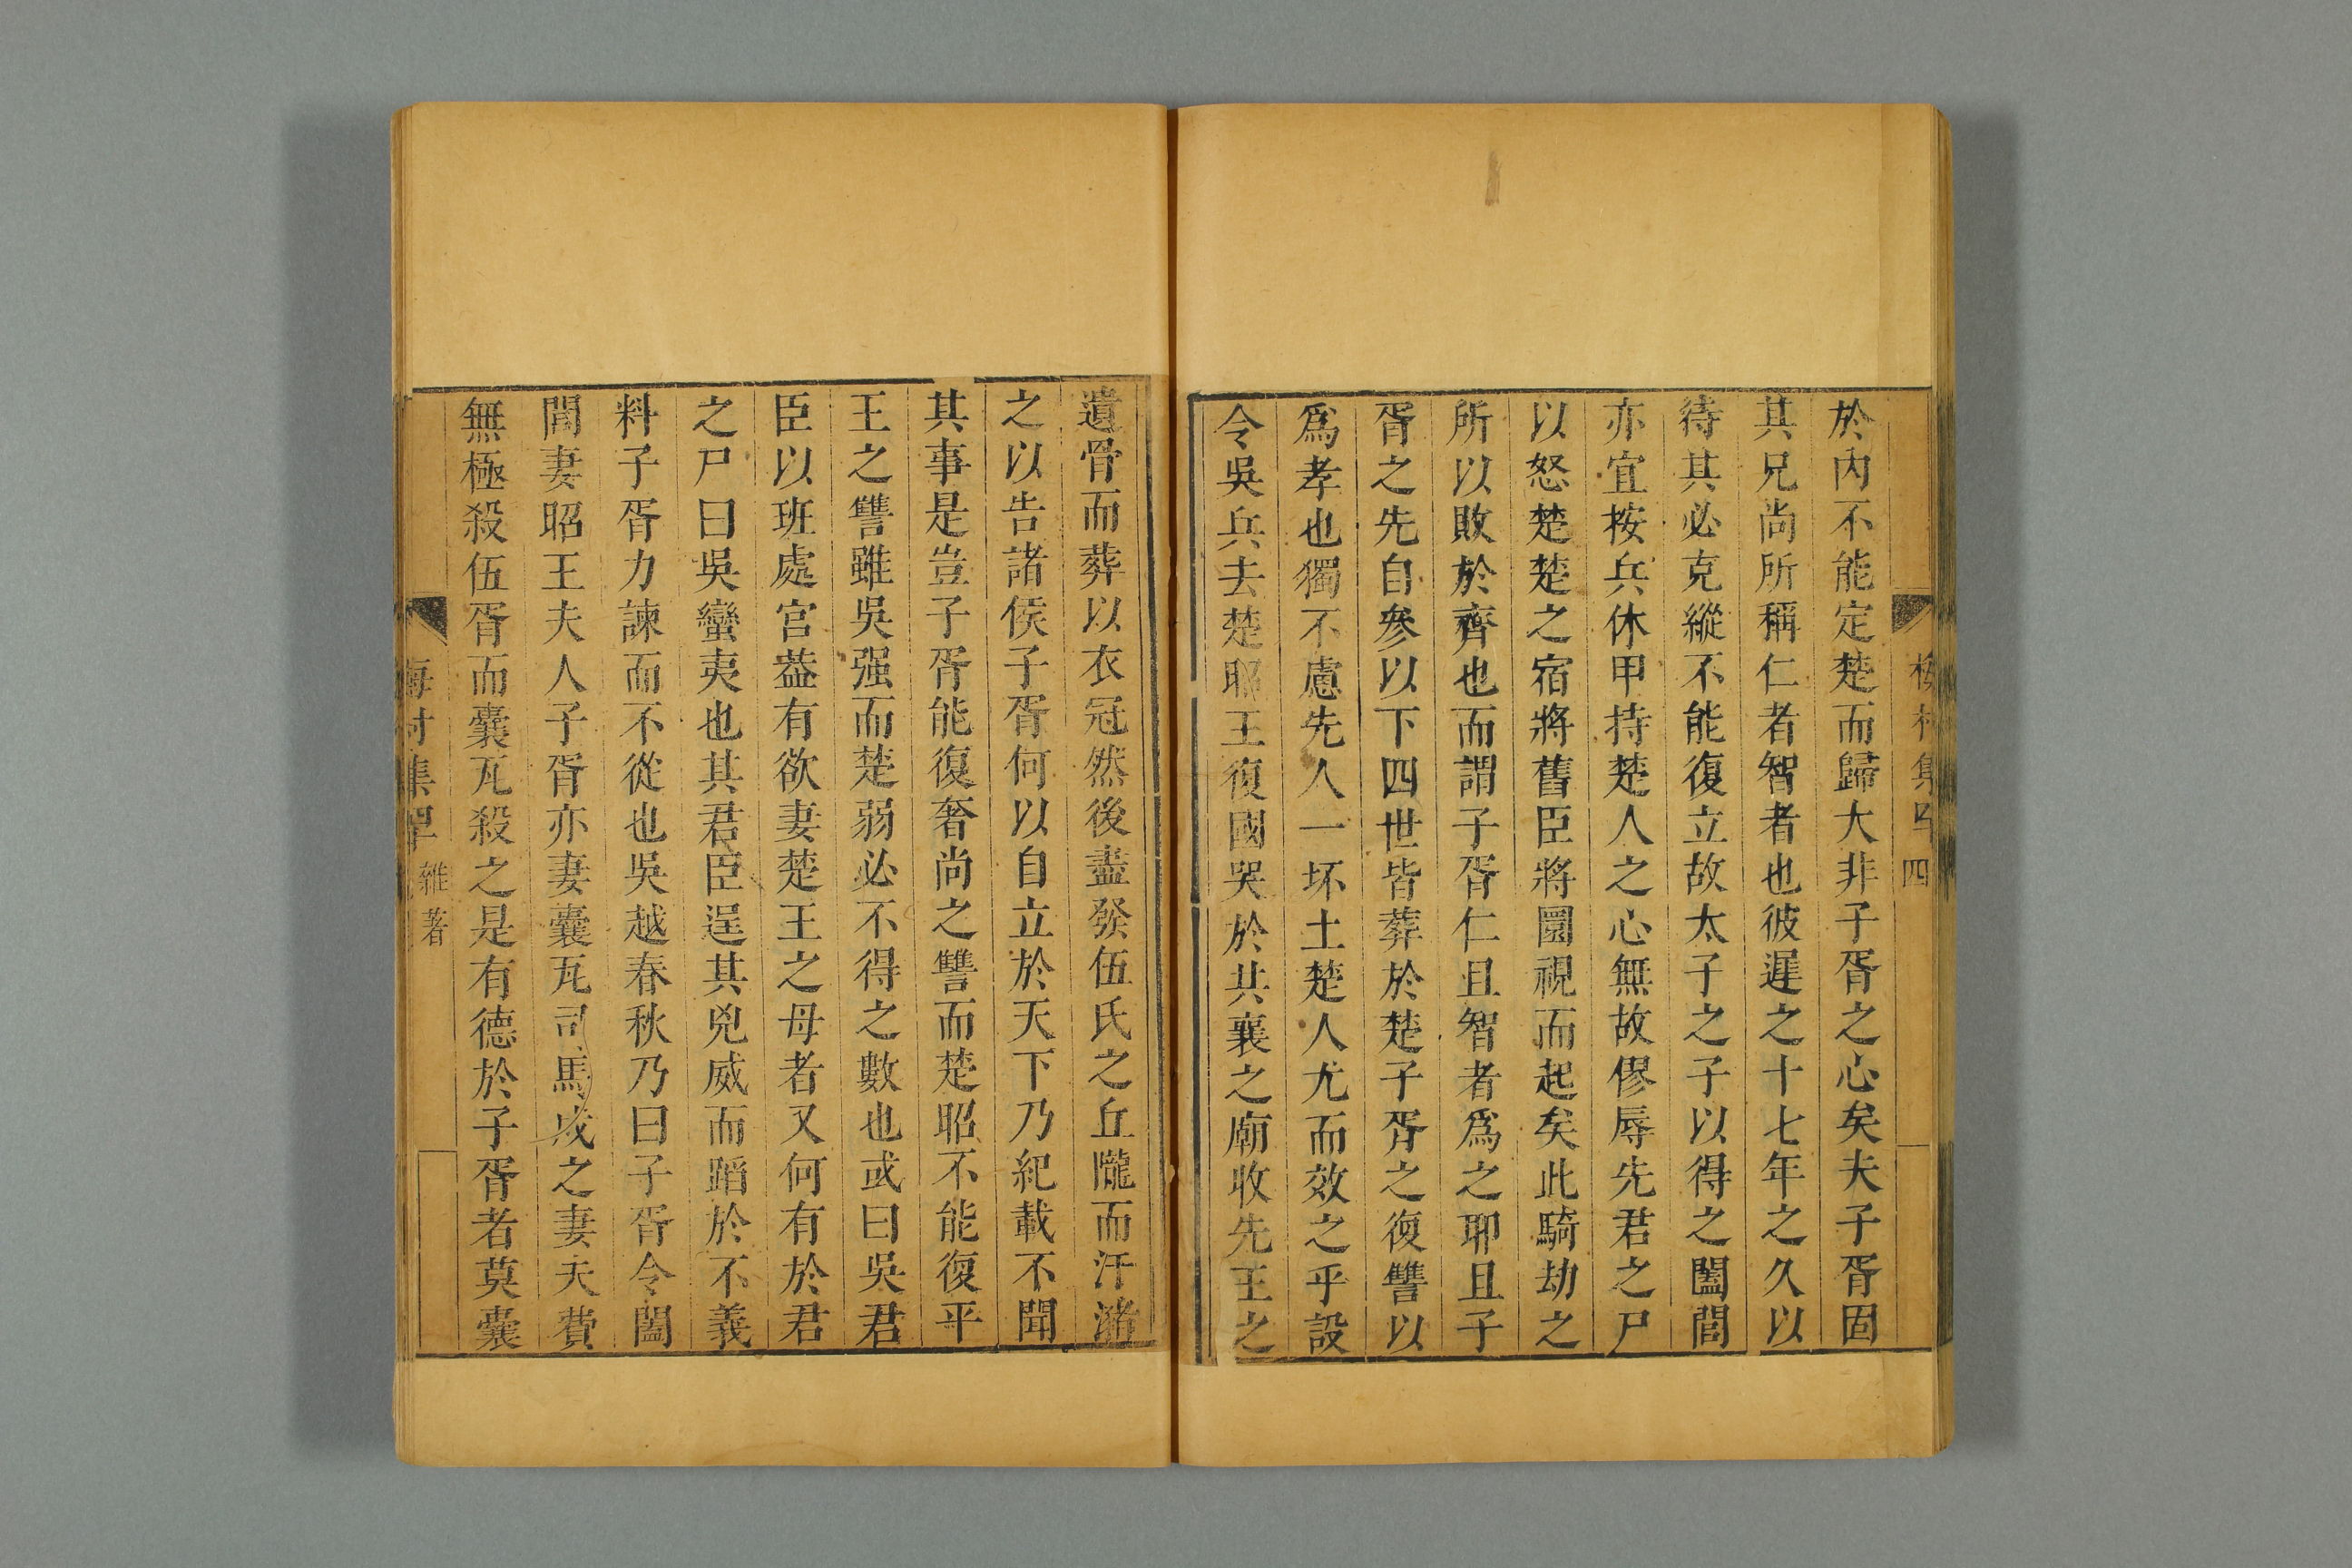 四
於內不能定楚而歸大非子胥之心矣夫子胥固
其兄尚所稱仁者智者也彼遲之十七年之久以
待其必克縱不能復立故太子之子以得之闔閭
亦宜按兵休甲持楚人之心無故僇辱先君之尸
以怒楚楚之宿將舊臣將圜視而起矣此騎劫之
所以敗於齊也而謂子胥仁且智者爲之耶且子
胥之先自參以下四世皆葬於楚子胥之復讐以
爲孝也獨不慮先人一坏土楚人尤而效之乎設
令吳兵去楚昭王復國哭於共襄之廟收先王之
遺骨而葬以衣冠然後盡發伍氏之丘隴而汙瀦
之以告諸侯子胥何以自立於天下乃紀載不聞
其事是豈子胥能復奢尚之讐而楚昭不能復平
王之讐雖吳强而楚弱必不得之數也或曰吳君
臣以班處宮葢有欲妻楚王之母者又何有於君
之尸曰吳蠻夷也其君臣逞其兇威而蹈於不義
料子胥力諫而不從也吳越春秋乃曰子胥令闔
閭妻昭王夫人子胥亦妻囊瓦司馬戍之妻夫費
無極殺伍胥而囊瓦殺之是有德於子胥者莫囊
雜著